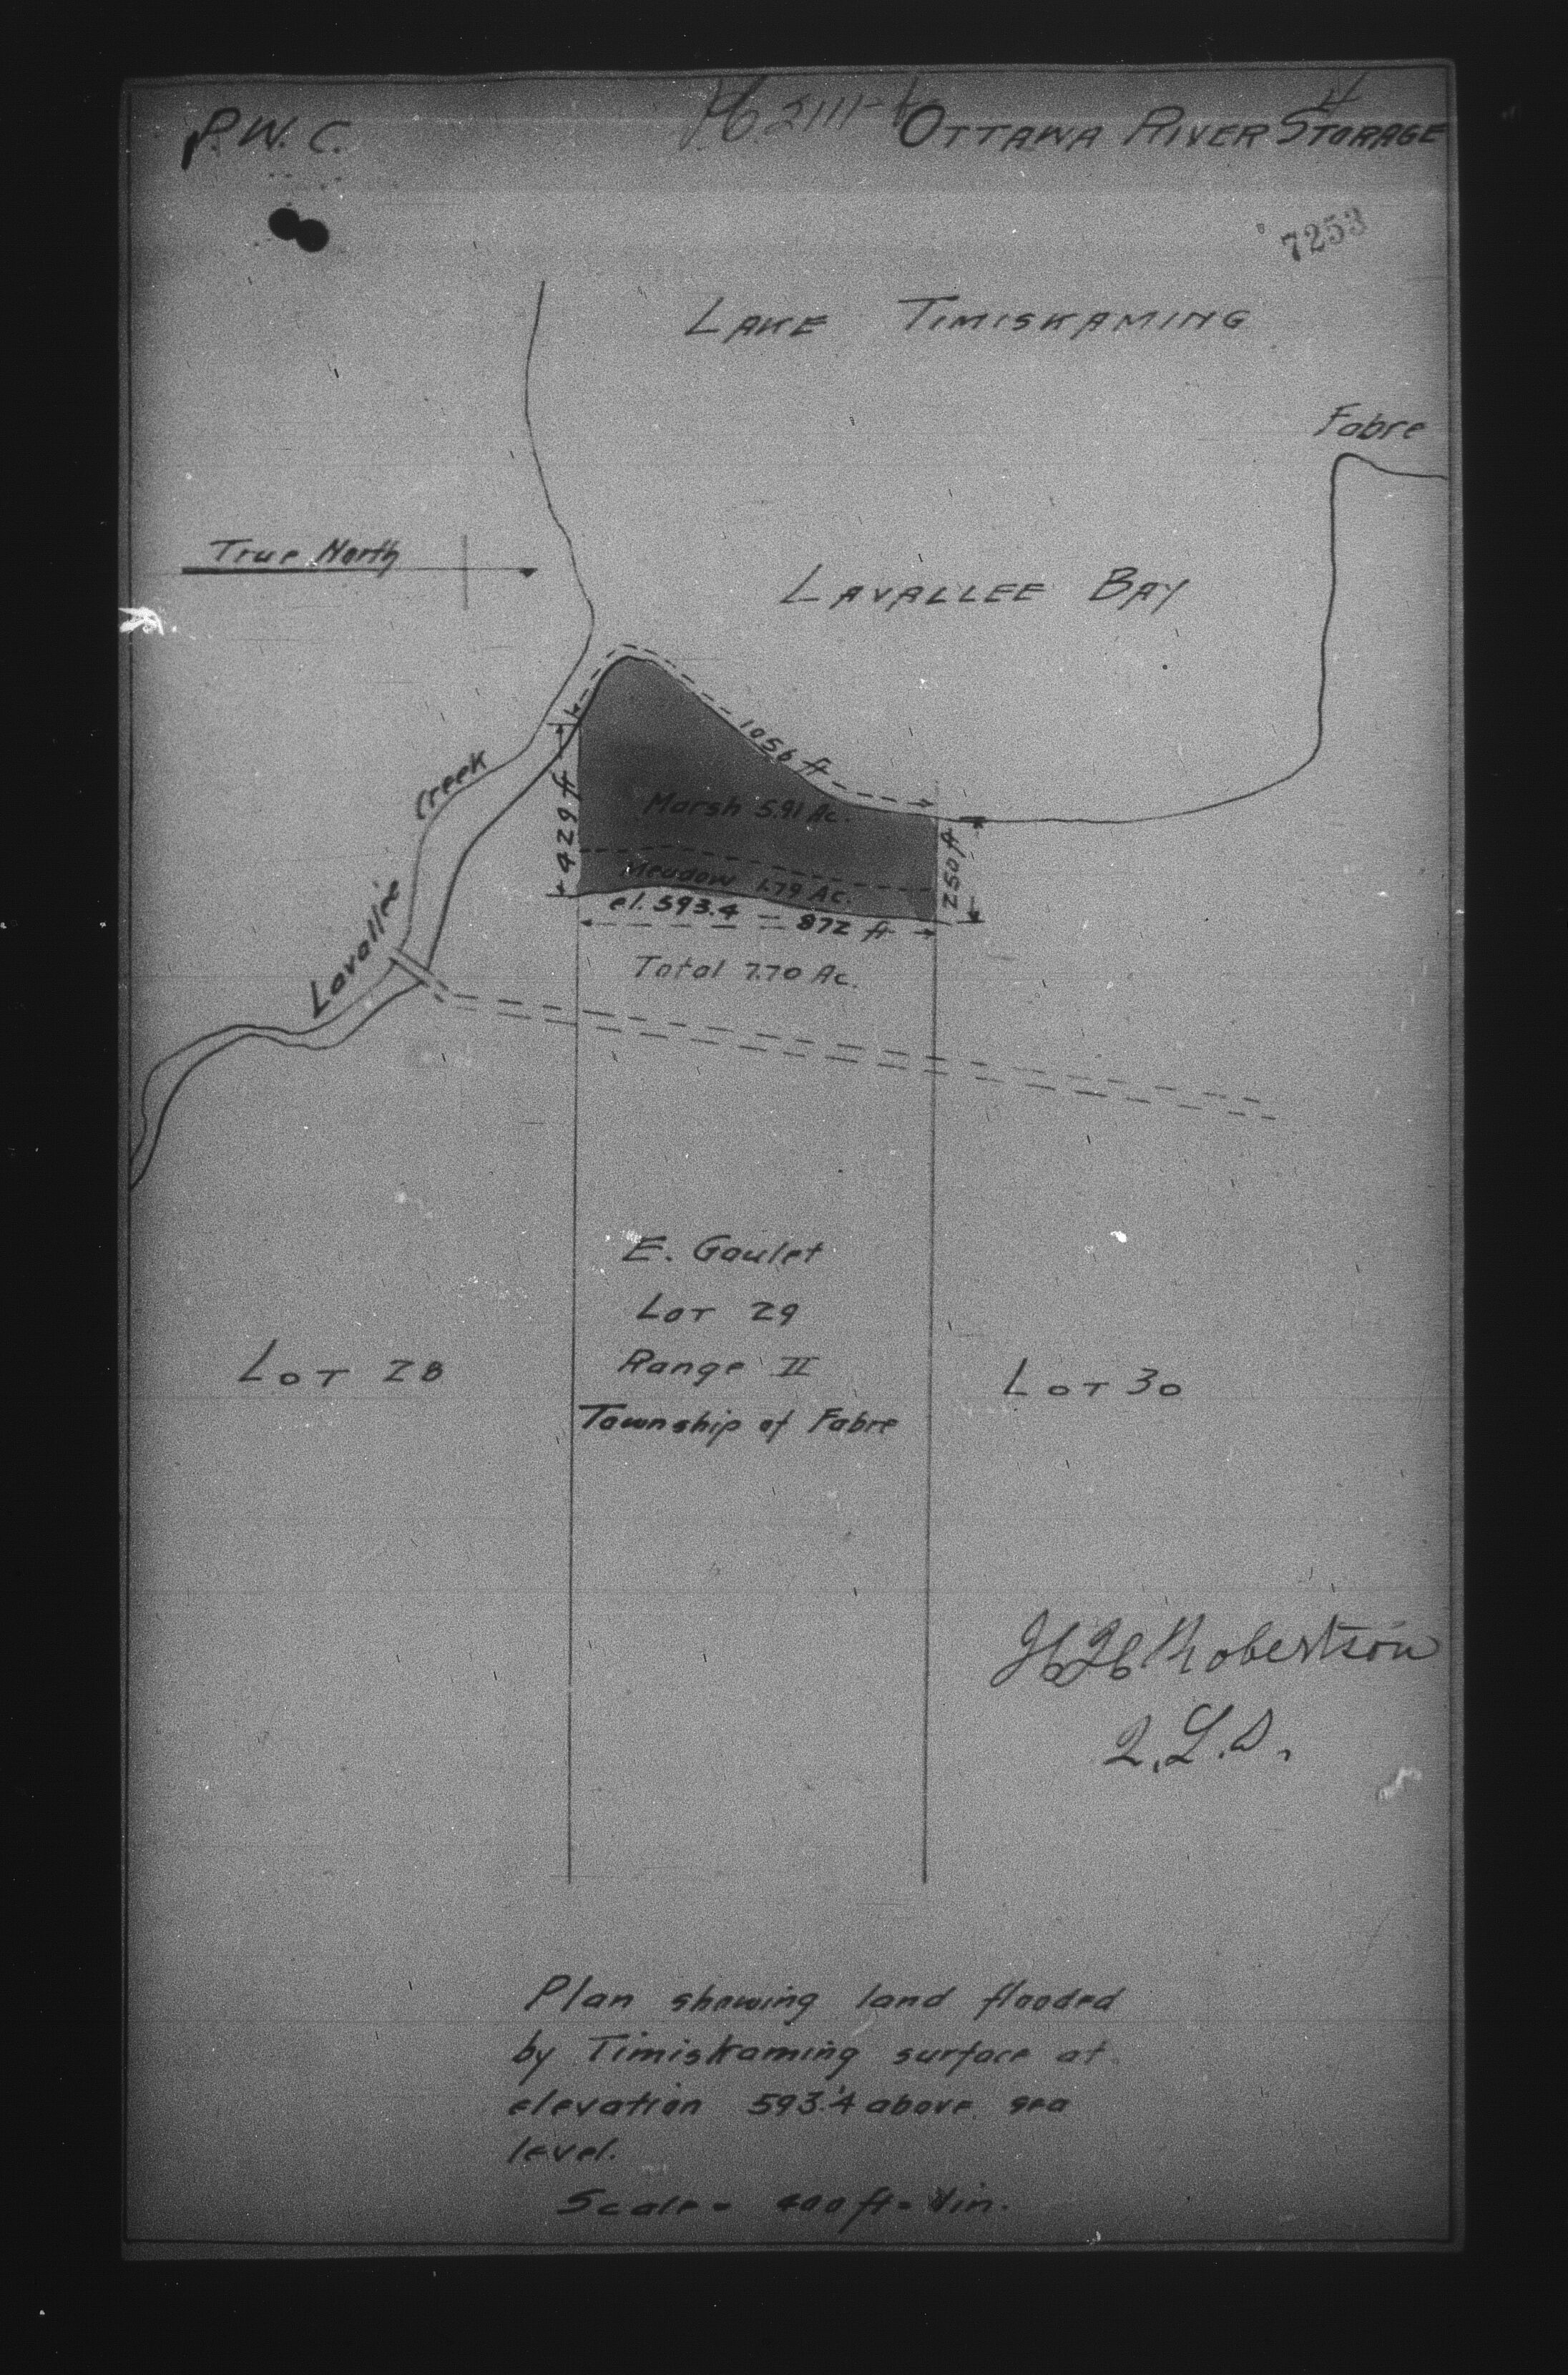 P.W.C.
2111-
OTTAWA RIVER STORAGE
7253
LAKE TIMISKAMING
Fabre
True North
LAVALLEE BAY
1056 ft
Creek
Lavallée
429 ft
Marsh 5.91 Ac.
250 ft
Meadow 1.79 Ac.
el. 593.4 — 872 ft
Total 7.70 Ac.
E. Goulet
LOT 29
Range II
Township of Fabre
LOT 28
LOT 30
H H Robertson
Q.L.S.
Plan showing land flooded
by Timiskaming surface at
elevation 593.'4 above sea
level.
Scale = 400 ft = 1 in.